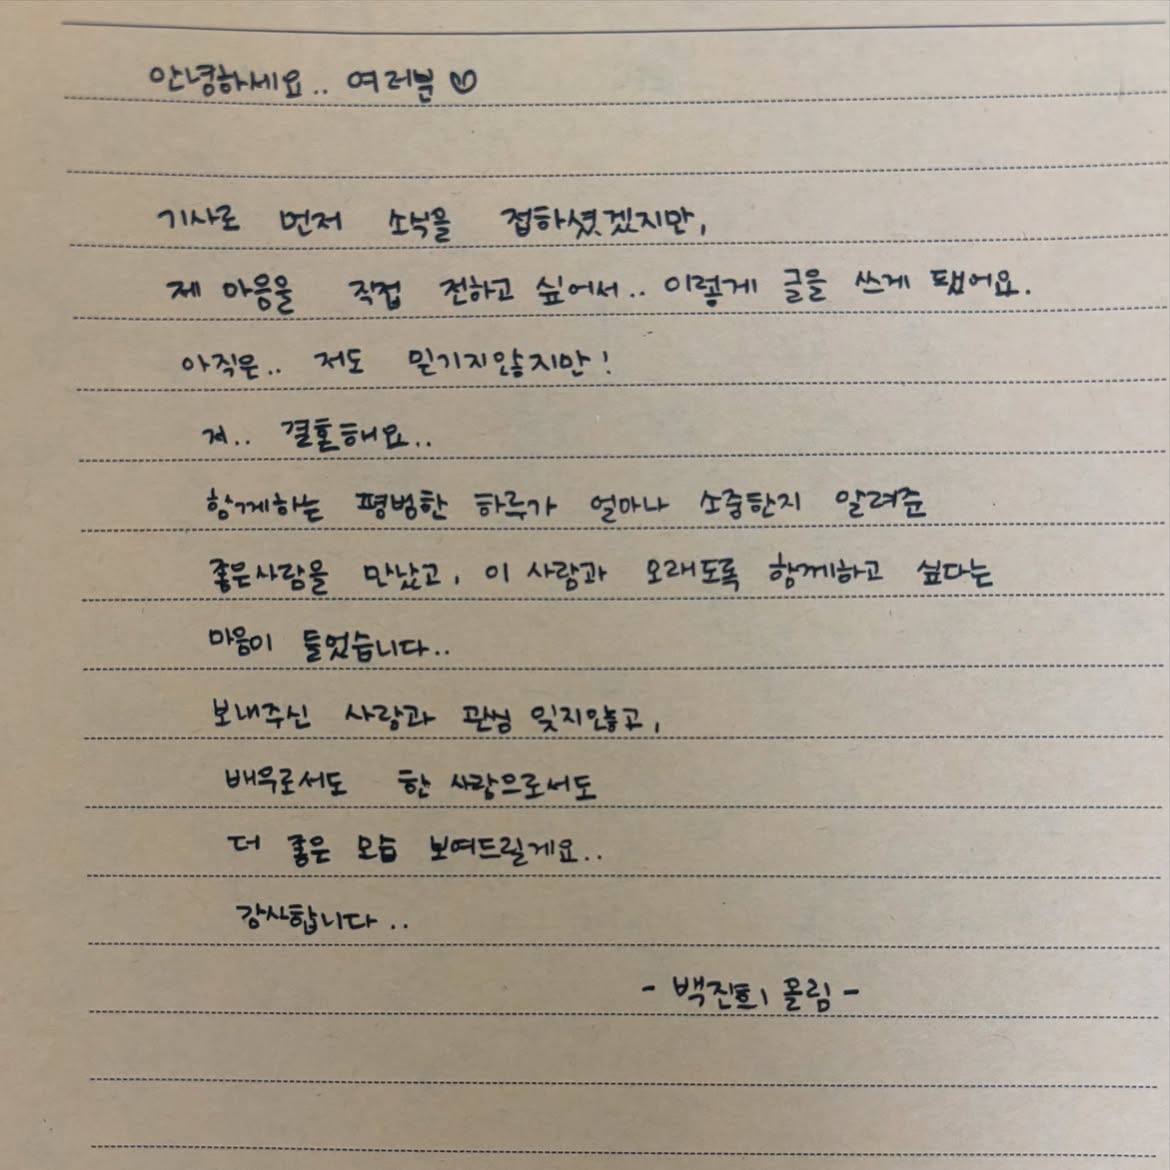 안녕하세요.. 여러분 ♡
기사로 먼저 소식을 접하셨겠지만,
제 마음을 직접 전하고 싶어서.. 이렇게 글을 쓰게 됐어요.
아직은.. 저도 믿기지않지만!
저.. 결혼해요..
함께하는 평범한 하루가 얼마나 소중한지 알려준
좋은사람을 만났고, 이 사람과 오래도록 함께하고 싶다는
마음이 들었습니다..
보내주신 사랑과 관심 잊지않고,
배우로서도 한 사람으로서도
더 좋은 모습 보여드릴게요..
감사합니다..
- 백진희 올림 -